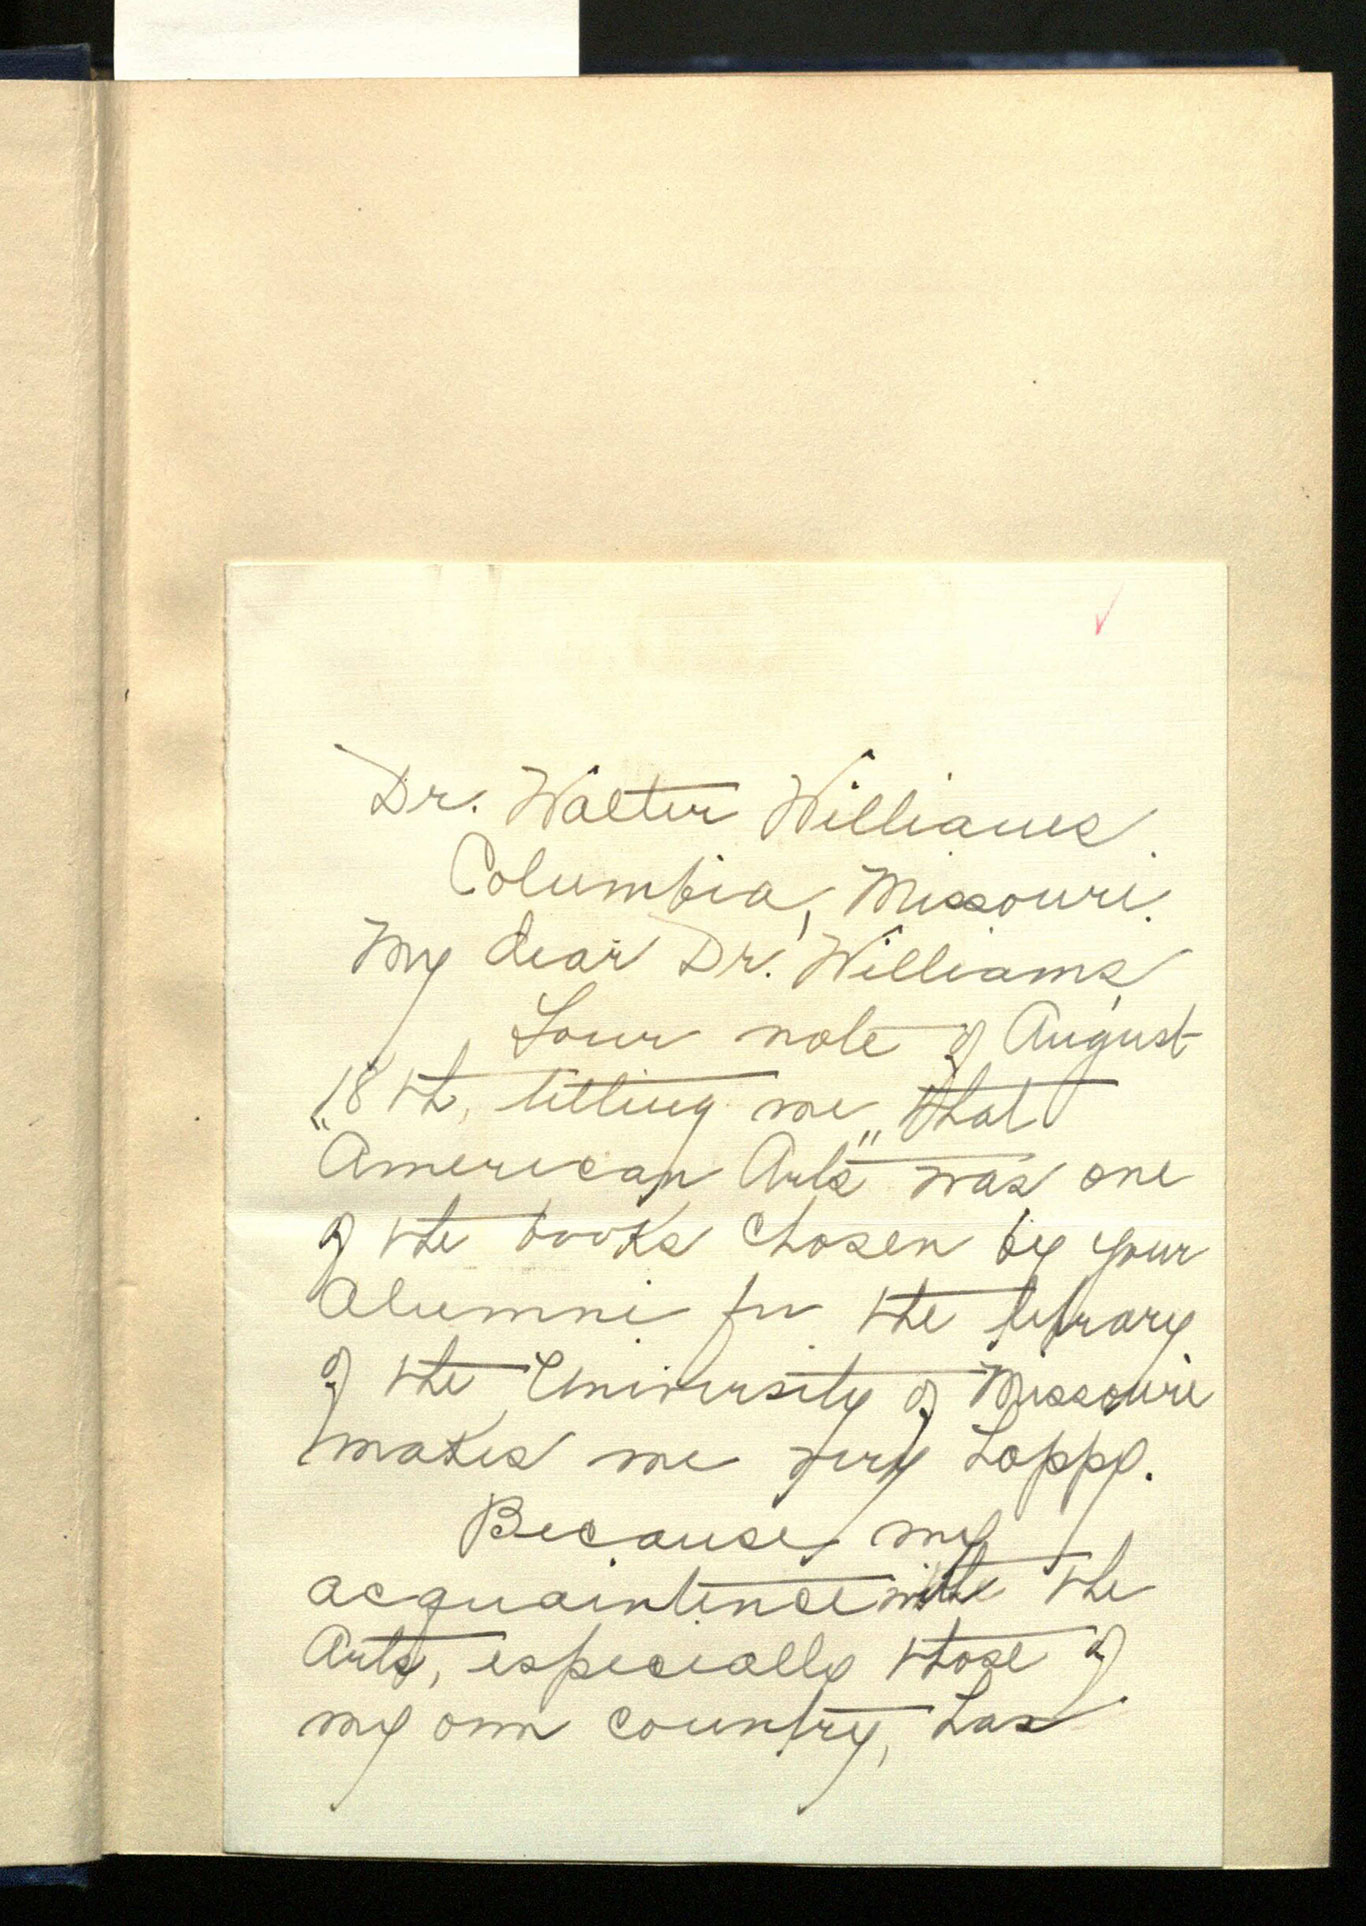 Dr. Walter Williams.
Columbia, Missouri.
My dear Dr. Williams,
Your note of August
18th, telling me that
"American Arts" was one
of the books chosen by your
Alumni for the library
of the University of Missouri
makes me very happy.
Because my
acquaintence with the
Arts, especially those of
my own country, has